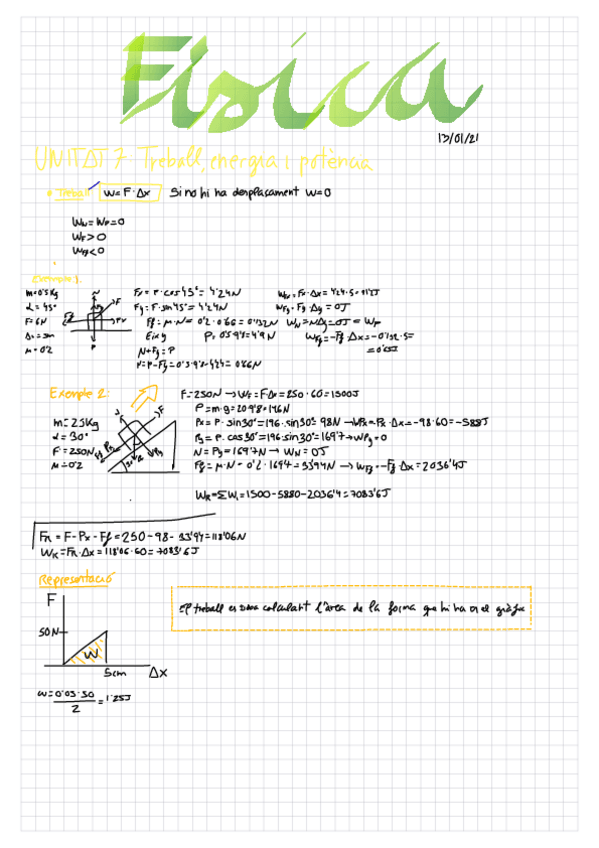 Física
13/01/21
UNITAT 7 Treball, energia i potència
• Treball W=F·Δx Si no hi ha desplaçament W=0
WN=WP=0
WF>0
WFf<0
Exemple 1:
m=0'5Kg
α=45°
F=6N
Δx=3m
μ=0'2
N
F
Fx
P
Fx=F·cos45°=4'24N
Fy=F·sin45°=4'24N
Ff=μ·N=0'2·0'66=0'132N
Eix y P=0'5·9'8=4'9N
N+Fy=P
N=P-Fy=0'5·9'8-4'24=0'66N
WFy=Fy·Δy=0J
WN=N·Δy=0J=WP
WFf=-Ff·Δx=-0'132·5=
Exemple 2:
m=25Kg
α=30°
F=250N
μ=0'2
F=250N→WF=F·Δx=250·60=1500J
P=m·g=20·9'8=196N
Px=P·sin30°=196·sin30°=98N→WPx=Px·Δx=-98·60=-588J
Py=P·cos30°=196·sin30°=169'7→WPy=0
N=Py=169'7N→WN=0J
Ff=μ·N=0'2·169'7=33'94N→WFf=-Ff·Δx=2036'4J
WR=ΣWi=1500-5880-2036'4=7083'6J
FR=F-Px-Ff=250-98-33'94=118'06N
WR=FR·Δx=118'06·60=7083'6J
Representació
F
50N
W
5cm Δx
El treball es dona calculant l'àrea de la forma que hi ha en el gràfic
W=0'05·50/2=1'25J